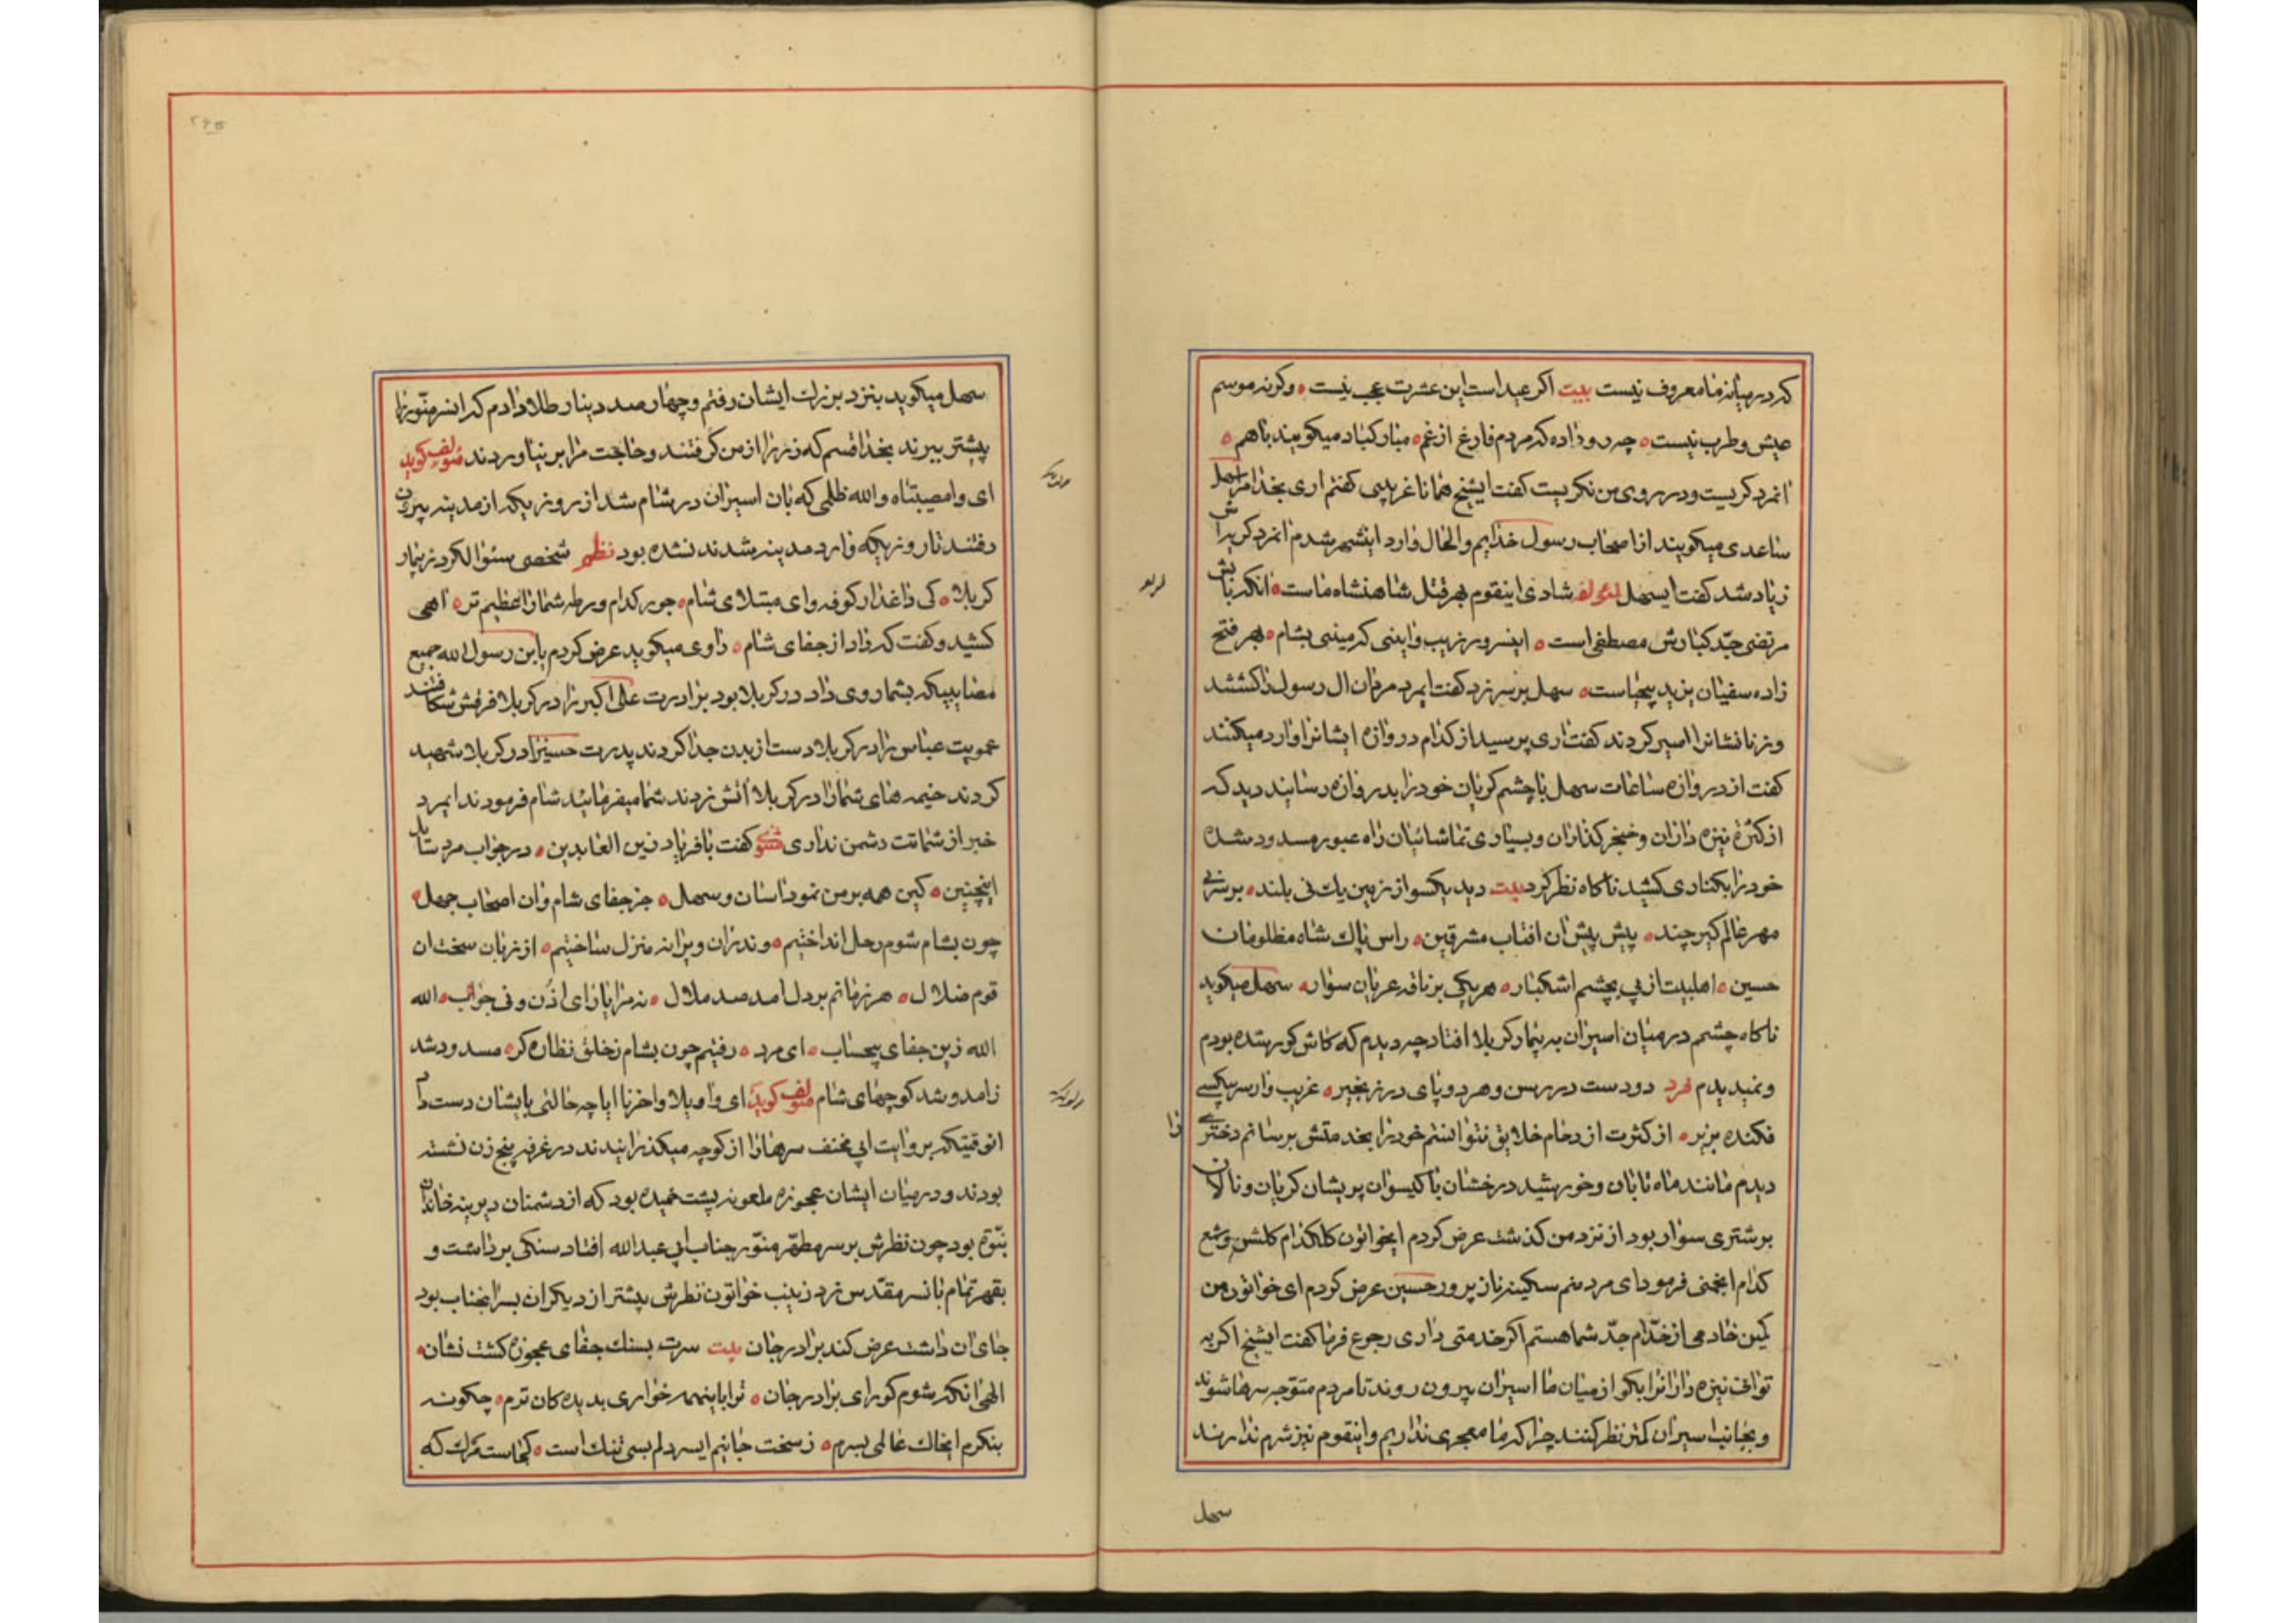 که در میانه ما معروف نیست بیت اکر عید است این عشرت عجب نیست ه وکرنه موسم
عیش و طرب نیست ه چه رو داده که مردم فارغ از غم ه مبارکباد میکویند باهم ه
انمرد کریست و در روی من نکریست کفت ایشیخ همانا غریبی کفتم اری بخدا مرا سهل
ساعدی میکویند از اصحاب رسول خدایم والحال وارد اینشهر شدم انمرد کریه اش
زیاد شد کفت ایسهل لمؤلفه شادی اینقوم بهر قتل شاهنشاه ماست ه انکه بابش
مرتضی جد کبارش مصطفی است ه اینسرور زیب و اینی که میبینی بشام ه بهر فتح
زاده سفیان یزید بیحیاست ه سهل بر سر زد کفت ایمرد مردان ال رسول را کشتند
و زنانشانرا اسیر کردند کفت اری پرسید از کدام دروازه ایشانرا وارد میکنند
کفت از دروازه ساعات سهل با چشم کریان خود را بدروازه رسانید دید که
از کثرة نیزه داران و خنجر کذاران و بسیاری تماشائیان راه عبور مسدود شده
خود را بکناری کشید ناکاه نظر کرد بیت دید یکسو از زمین یک نی بلند ه بر سر نی
مهر عالم کیر چند ه پیش پیش ان افتاب مشرقین ه راس پاک شاه مظلومان
حسین ه اهلبیت از پی بچشم اشکبار ه هر یکی بر ناقه عریان سوار ه سهل میکوید
ناکاه چشمم در میان اسیران به بیمار کربلا افتاد چه دیدم که کاش کور شده بودم
و نمیدیدم فرد دو دست در رسن و هر دو پای در زنجیر ه غریب وار سر بیکسی
فکنده بزیر ه از کثرت ازدحام خلایق نتوانستم خود را بخدمتش برسانم دختری را
دیدم مانند ماه تابان و خورشید درخشان با کیسوان پریشان کریان و نالان
بر شتری سوار بود از نزد من کذشت عرض کردم ایخواتون کل کدام کلشن و شمع
کدام انجمنی فرمود ای مرد منم سکینه ناز پرور حسین عرض کردم ای خواتون من
کمین خادمی از خدام جد شما هستم اکر خدمتی داری رجوع فرما کفت ایشیخ اکر به
توانی نیزه دارانرا بکو از میان ما اسیران بیرون روند تا مردم متوجه سرها شوند
و بجانب اسیران کمتر نظر کنند چرا که ما معجری نداریم و اینقوم نیز شرم ندارند
سهل
سهل میکوید بنزد بزرک ایشان رفتم و چهار صد دینار طلا دادم که انسر منور را
پیشتر ببرند بخدا قسم که زر را از من کرفتند و حاجت مرا بر نیاوردند مؤلف کوید
ای وا مصیبتاه والله ظلمی که بان اسیران در شام شد از روزیکه از مدینه بیرون
رفتند تا روزیکه وارد مدینه شدند نشده بود نظم شخصی سئوال کرد ز بیمار
کربلا ه کی داغدار کوفه و ای مبتلای شام ه جور کدام ورطه شما را عظیم تر ه اهی
کشید و کفت که داد از جفای شام ه راوی میکوید عرض کردم یابن رسول الله جمیع
مصایبیکه بشما روی داد در کربلا بود برادرت علی اکبر را در کربلا فرقش شکافتند
عمویت عباس را در کربلا دست از بدن جدا کردند پدرت حسین را در کربلا شهید
کردند خیمه های شما را در کربلا اتش زدند شما میفرمائید شام فرمودند ایمرد
خبر از شماتت دشمن نداری مثنوی کفت با فریاد زین العابدین ه در جواب مرد سائل
اینچنین ه کین همه بر من نمود اسان و سهل ه جز جفای شام و ان اصحاب جهل ه
چون بشام شوم رحل انداختیم ه وندران ویرانه منزل ساختیم ه از زبان سخت ان
قوم ضلال ه هر زمانم بر دل امد صد ملال ه نه مرا یارای اذن و نی جواب ه الله
الله زین جفای بیحساب ه ای مرد ه رفتیم چون بشام ز خلق نظاره کر ه مسدود شد
ز امد و شد کوچهای شام مؤلف کوید ای وا ویلا و احزنا ایا چه حالتی بایشان دست داد
انوقتیکه بروایت ابی مخنف سرها را از کوچه میکذرانیدند در غرفه پنج زن نشسته
بودند و در میان ایشان عجوزه ملعونه پشت خمیده بود که از دشمنان دیرینه خاندان
نبوة بود چون نظرش بر سر مطهر منور جناب ابی عبدالله افتاد سنکی برداشت و
بقهر تمام بانسر مقدس زد زینب خواتون نظرش بیشتر از دیکران بسر انجناب بود
جای ان داشت عرض کند برادر جان بیت سرت بسنک جفای عجوزه کشت نشان ه
الهی انکه شوم کور ای برادر جان ه ترا باینهمه خواری بدیده کان ترم ه چکونه
بنکرم ایخاک عالمی بسرم ه ز سخت جانیم ایسر دلم بسی تنک است ه کجاست مرک که